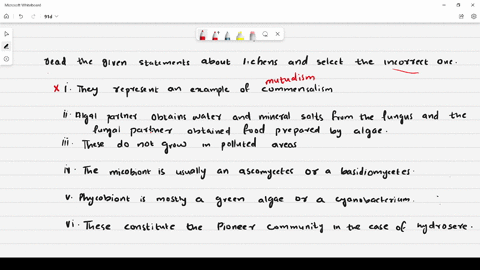 Microsoft Whiteboard
91d
Read the given statements about lichens and select the incorrect one.
mutudism
x i. They represent an example of commensalism
ii. Algal partner obtains water and mineral salts from the fungus and the
fungal partner obtained food prepared by algae.
iii. These do not grow in polluted areas
iv. The micobiont is usually an ascomycetes or a basidiomycetes.
v. Phycobiont is mostly a green algae or a cyanobacterium.
vi. These constitute the Pioneer community in the case of hydrosere.